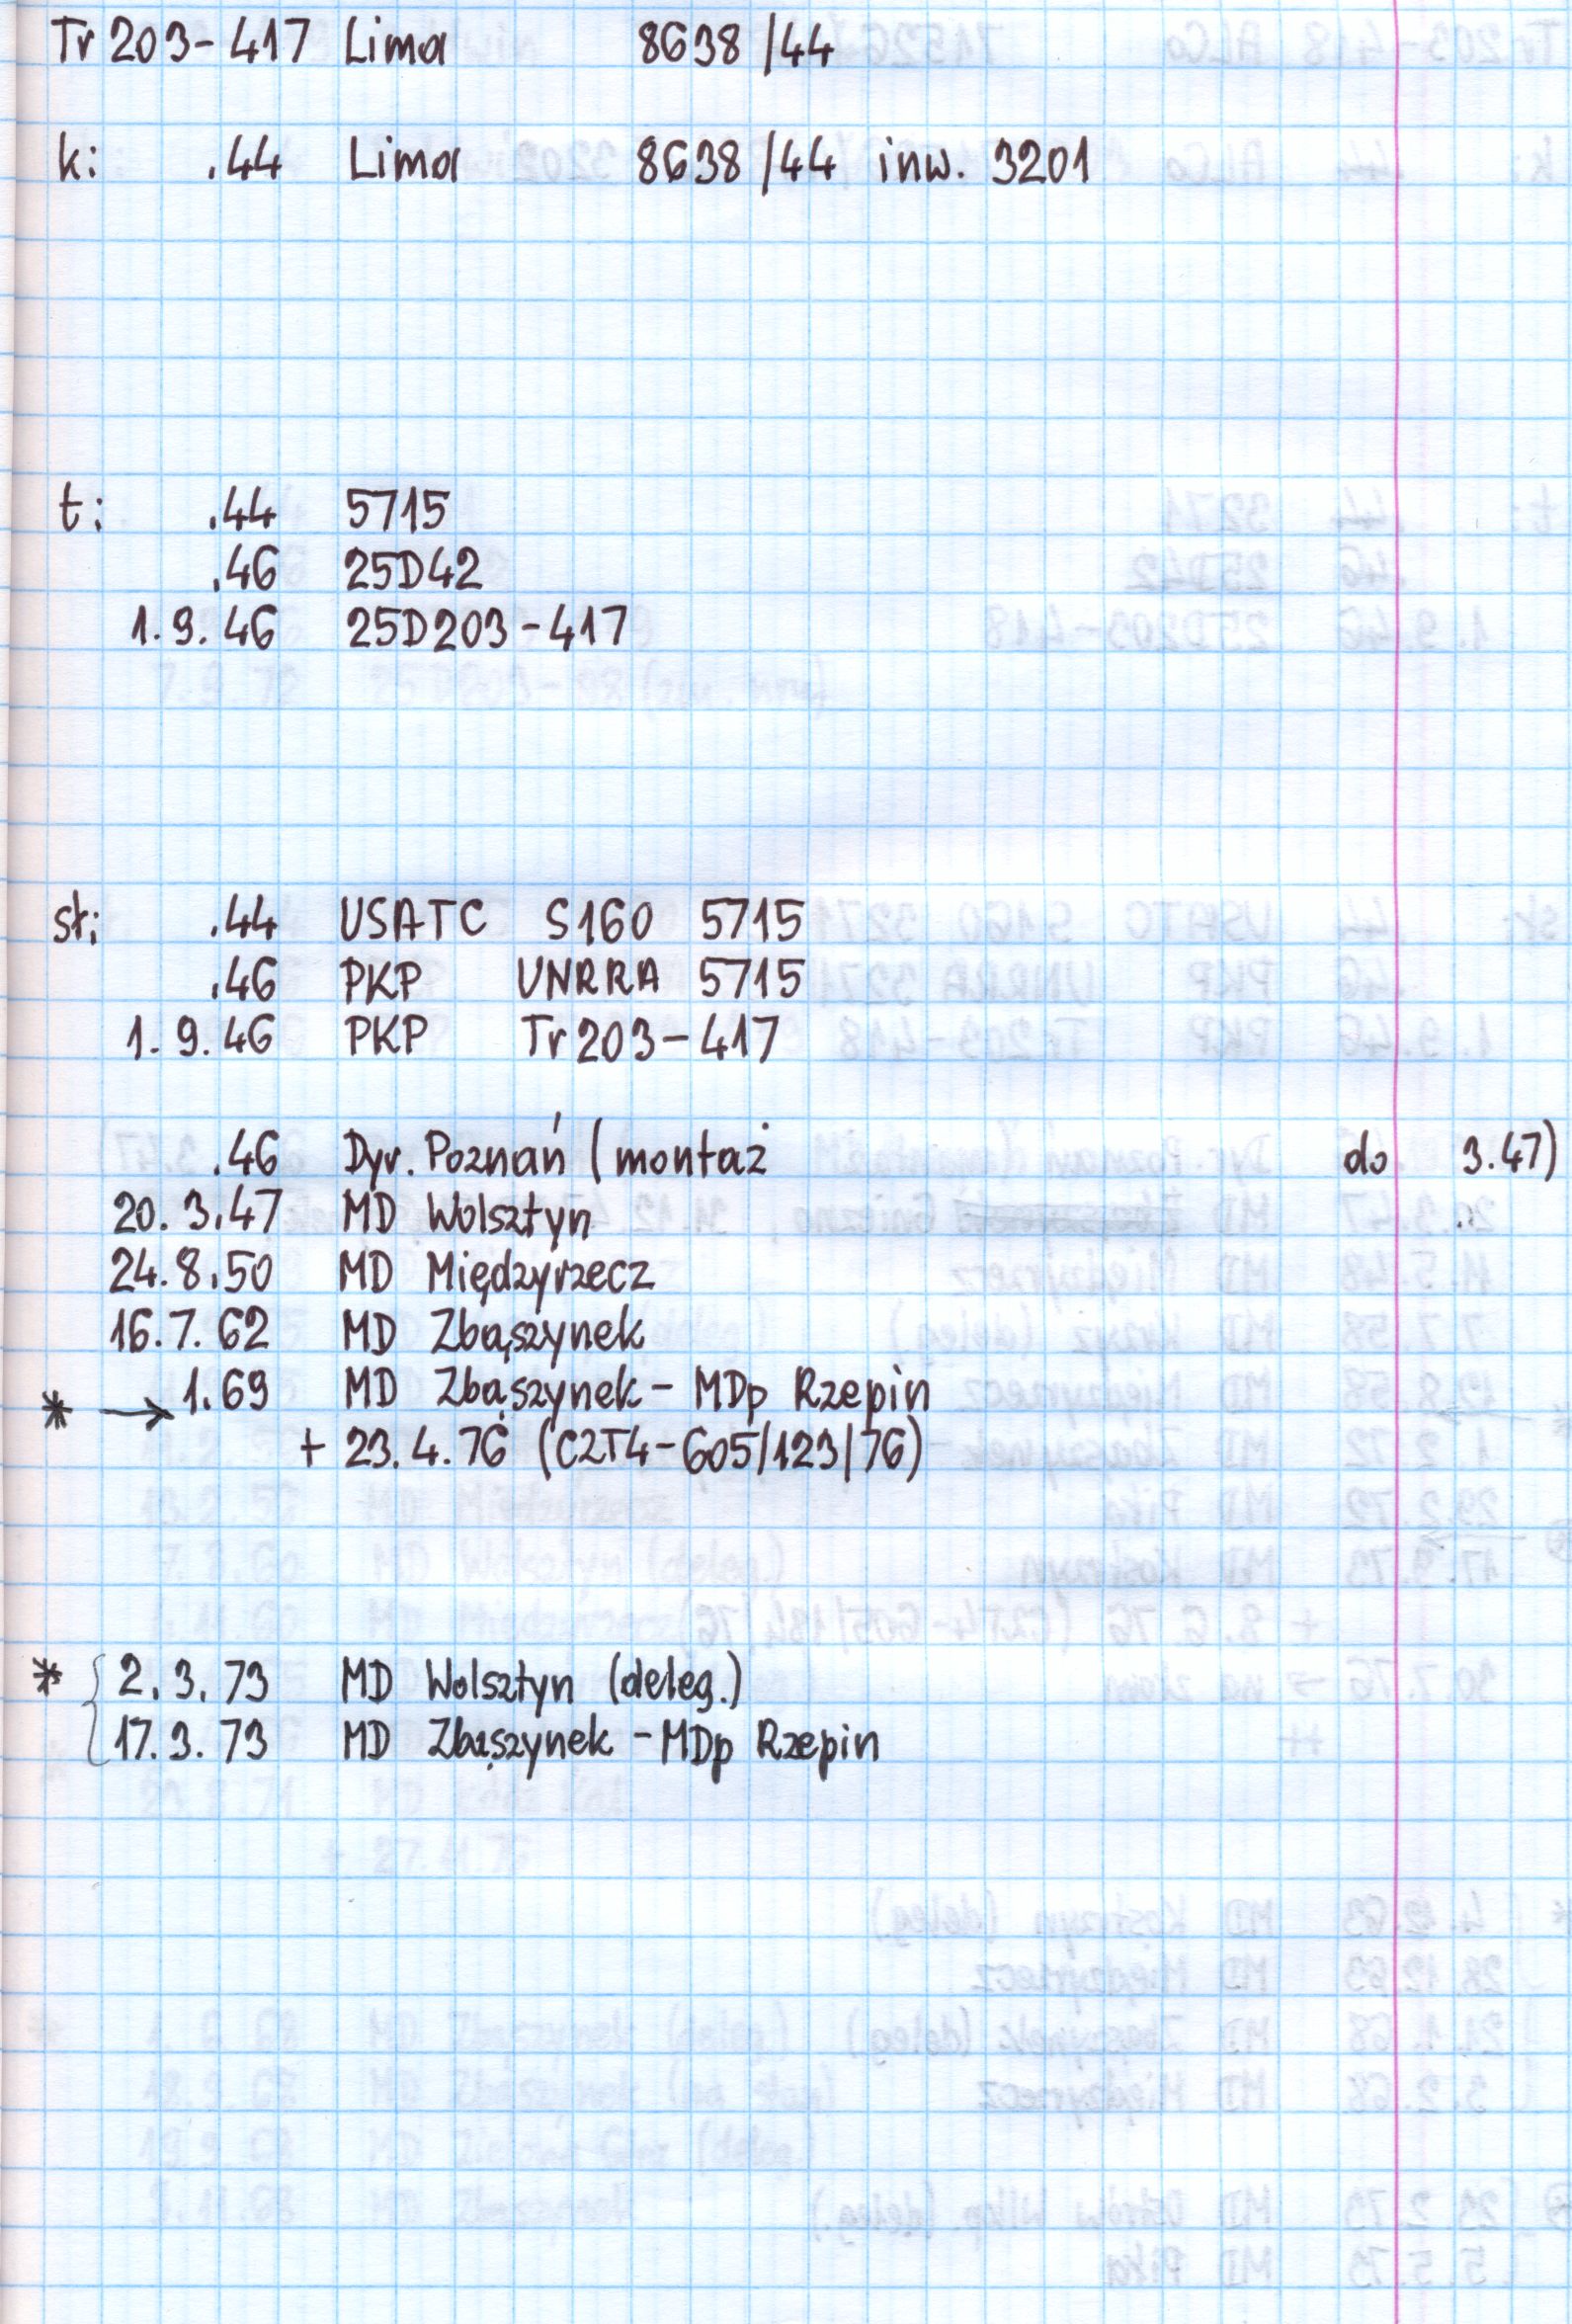 Tr 203-417 Lima 8638/44
k: .44 Lima 8638/44 inw. 3201
t: .44 5715
.46 25D42
1.9.46 25D203-417
st: .44 USATC S160 5715
.46 PKP UNRRA 5715
1.9.46 PKP Tr 203-417
.46 Dyr. Poznań (montaż do 3.47)
20.3.47 MD Wolsztyn
24.8.50 MD Międzyrzecz
16.7.62 MD Zbąszynek
* → 1.69 MD Zbąszynek - MDp Rzepin
+ 23.4.76 (C2T4-605/123/76)
* { 2.3.73 MD Wolsztyn (deleg.)
17.3.73 MD Zbąszynek - MDp Rzepin